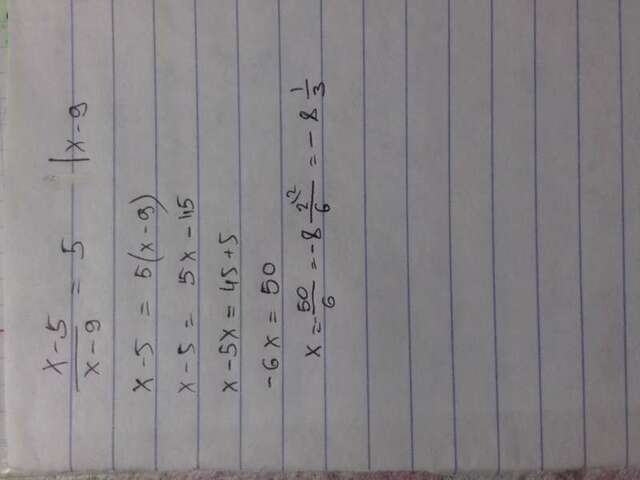 x-5/x-9 = 5 |x-9
x-5 = 5(x-9)
x-5 = 5x-45
x-5x = 45+5
-6x = 50
x = -50/6 = -8 2\2/6 = -8 1/3